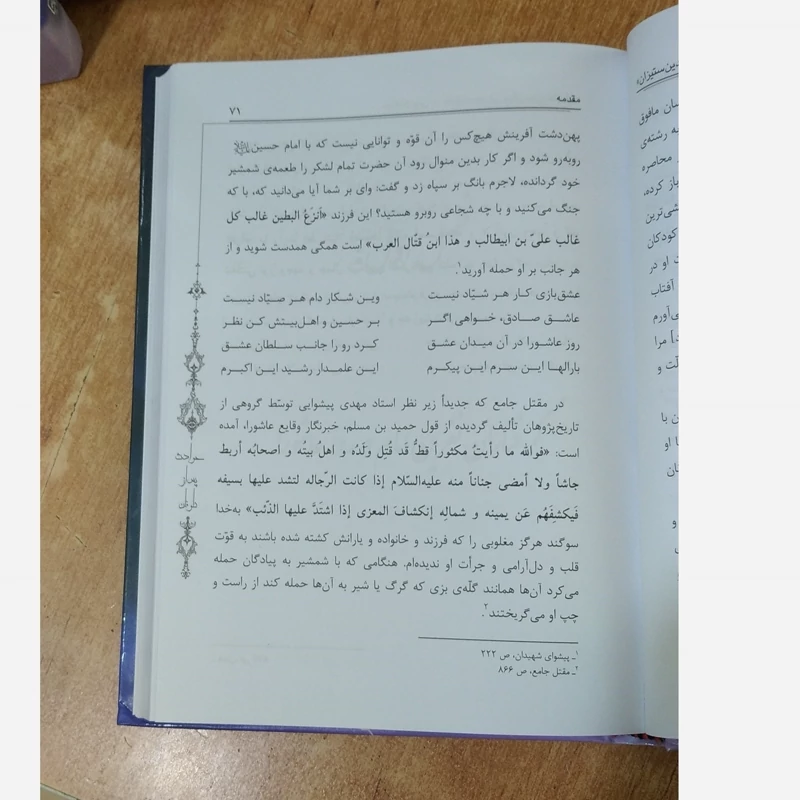 مقدمه ۷۱
پهن‌دشت آفرینش هیچ‌کس را آن قوّه و توانایی نیست که با امام حسین
روبه‌رو شود و اگر کار بدین منوال رود آن حضرت تمام لشکر را طعمه‌ی شمشیر
خود گردانده، لاجرم بانگ بر سپاه زد و گفت: وای بر شما آیا می‌دانید که، با که
جنگ می‌کنید و با چه شجاعی روبرو هستید؟ این فرزند «أنزَعُ البطین غالب کل
غالب علیّ بن ابیطالب و هذا ابنُ قتّال العرب» است همگی همدست شوید و از
هر جانب بر او حمله آورید.۱
عشق‌بازی کار هر شیّاد نیست وین شکار دام هر صیّاد نیست
عاشق صادق، خواهی اگر بر حسین و اهل‌بیتش کن نظر
روز عاشورا در آن میدان عشق کرد رو را جانب سلطان عشق
بارالها این سرم این پیکرم این علمدار رشید این اکبرم
در مقتل جامع که جدیداً زیر نظر استاد مهدی پیشوایی توسّط گروهی از
تاریخ‌پژوهان تألیف گردیده از قول حمید بن مسلم، خبرنگار وقایع عاشورا، آمده
است: «فوالله ما رأیتُ مکثوراً قطُّ قَد قُتِل وَلَدُه و اهلُ بیتُه و اصحابُه أربط
جاشاً ولا أمضی جناناً منه علیه‌السّلام إذا کانت الرّجاله لتشد علیها بسیفه
فَیکشِفَهُم عَن یمینه و شمالِه إنکشافَ المعزی إذا اشتَدَّ علیها الذّئب» به‌خدا
سوگند هرگز مغلوبی را که فرزند و خانواده و یارانش کشته شده باشند به قوّت
قلب و دل‌آرامی و جرأت او ندیده‌ام. هنگامی که با شمشیر به پیادگان حمله
می‌کرد آن‌ها همانند گلّه‌ی بزی که گرگ یا شیر به آن‌ها حمله کند از راست و
چپ او می‌گریختند.۲
۱ـ پیشوای شهیدان، ص ۲۲۲
۲ـ مقتل جامع، ص ۸۶۶
دین‌ستیزان»
سان مافوق
به رشته‌ی
محاصره
باز کرده،
کودکان
ت او در
آفتاب
مرا
و
ن با
ا او
و